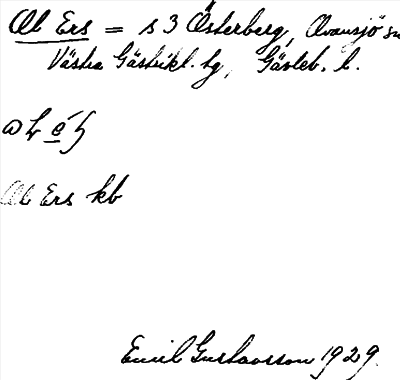 Ol Ers = s 3 Österberg, Ovansjö sn
Västra Gästrikl. hg, Gävleb. l.
Ol Ers kb
Emil Gustavsson 1929.